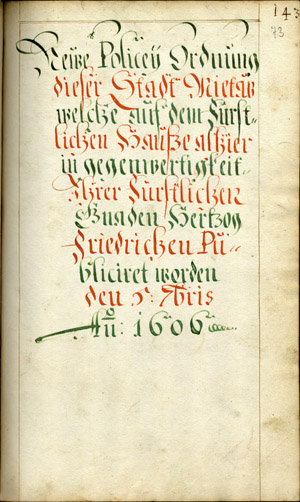 143
73
Newe Policey Ordnung
dieser Stadt Mietaw
welche auf dem Fürst-
lichen Hauße alhier
in gegenwertigkeit
Ihrer Fürstlichen
Gnaden Hertzog
Friedrichen Pu-
bliciret worden
den 5: 7bris
Ao: 1606